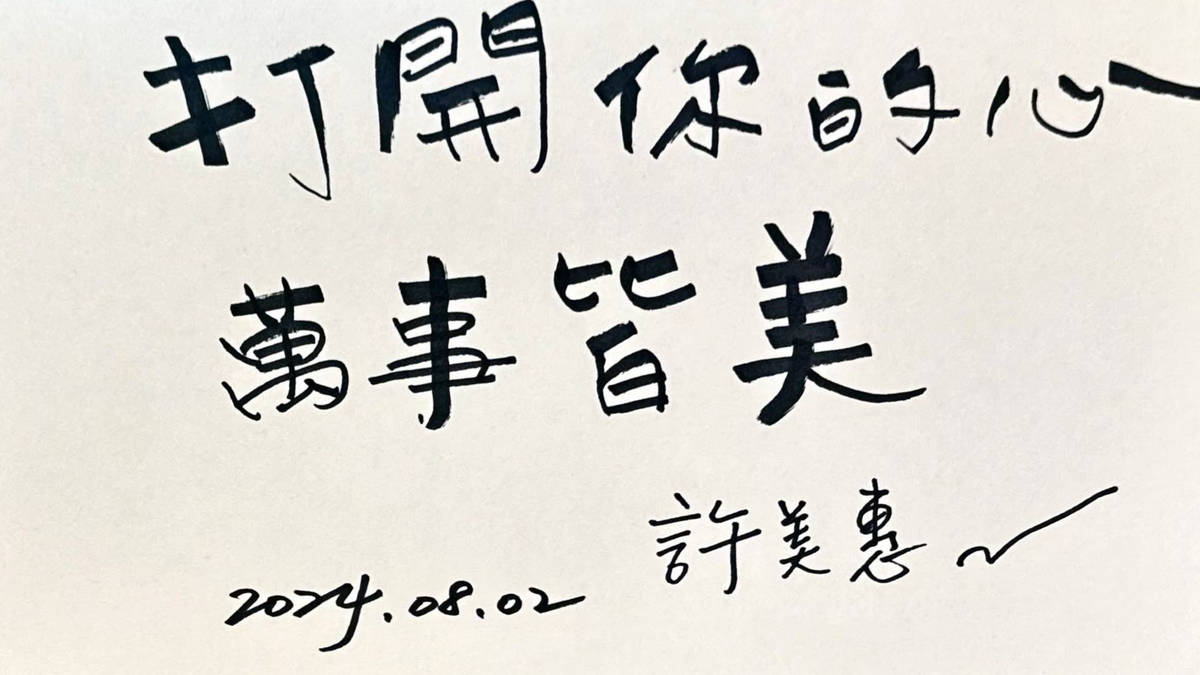 打開你的心
萬事皆美
許美惠
2024.08.02